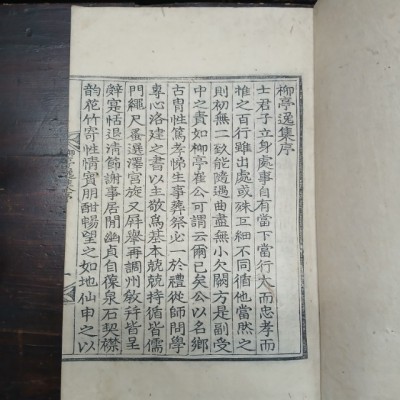 柳亭逸集序
士君子立身處事自有當下當行大而忠孝而
推之百行雖出處或殊巨細不同循他當然之
則初無二致能隨遇曲盡無小欠闕方是副受
中之責如柳亭崔公可謂云爾已矣公以名鄉
古胄性篤孝悌生事葬祭必一於禮從師問學
專心洛建之書以主敬為基本兢兢持循皆儒
門繩尺蚤選澤宮旋又屛擧再調州敎幷皆呈
辭寔恬退淸節謝事居閒幽貞自葆泉石契襟
韵花竹寄性情賓朋酣暢望之如地仙申之以
柳亭逸集序